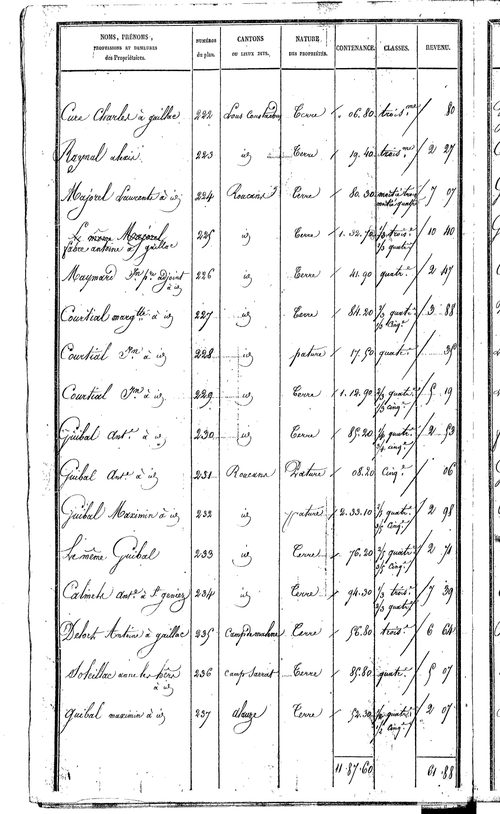 NOMS, PRÉNOMS, PROFESSIONS ET DEMEURES des Propriétaires. NUMÉROS du plan. CANTONS OU LIEUX DITS. NATURE DES PROPRIÉTÉS. CONTENANCE. CLASSES. REVENU.
Cure Charles à gaillac 222 Terre 06.80 trois.me 80
Raynal alexis 223 id Terre 19.40 trois.me 2 27
Majorel Laurente à id 224 Roncans Terre 80.30 7 07
Le même Majorel
fabre antoine à gaillac 225 id Terre 1.32.70 1/2 trois.e 1/2 quatr.e 10 40
Maymard adjoint à id 226 id Terre 41.90 quatr.e 2 47
Courtial marg.tte à id 227 id Terre 84.20 quatr.e cinq.e 3 88
Courtial Jn à id 228 id pature 17.50 quatr.e 35
Courtial Jn à id 229 id Terre 1.12.90 2/3 quatr.e 1/3 cinq.e 5 19
Guibal Ant.e à id 230 id Terre 85.20 1/4 quatr.e 3/4 cinq.e 2 53
Guibal Ant.e à id 231 Roncans Pature 08.20 cinq.e 06
Guibal Maximin à id 232 id pature 2.33.10 quatr.e cinq.e 2 98
Le même Guibal 233 id Terre 76.20 quatr.e cinq.e 2 71
Calmets ant.e à St geniez 234 id Terre 94.30 1/3 trois.e 2/3 quatr.e 7 39
Deloch Antoine à gaillac 235 Terre 56.80 trois.e 6 64
anne à id 236 camp Sarrat Terre 85.80 quatr.e 5 07
guibal maximin à id 237 Terre 52.30 1/2 quatr.e 1/2 cinq.e 2 07
11.87.60 61.88